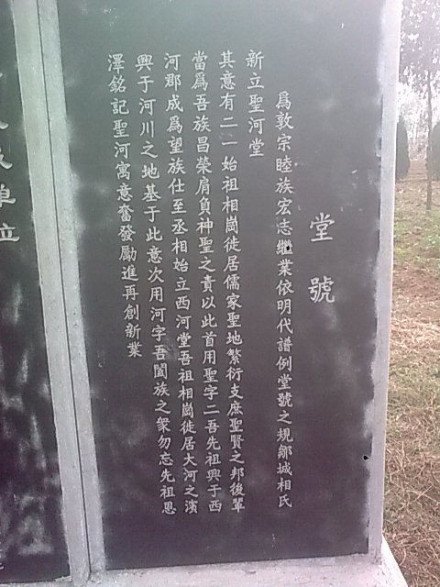 堂號
爲敦宗睦族宏志繼業依明代譜例堂號之規鄃城相氏
新立聖河堂
其意有二一始祖相崗徙居儒家聖地繁衍支庶聖賢之邦後輩
當爲吾族昌榮肩負神聖之責以此首用聖字二吾先祖興于西
河郡成爲望族仕至丞相始立西河堂吾祖相崗徙居大河之濱
興于河川之地基于此意次用河字吾闔族之衆勿忘先祖恩
澤銘記聖河寓意奮發勵進再創新業
單位